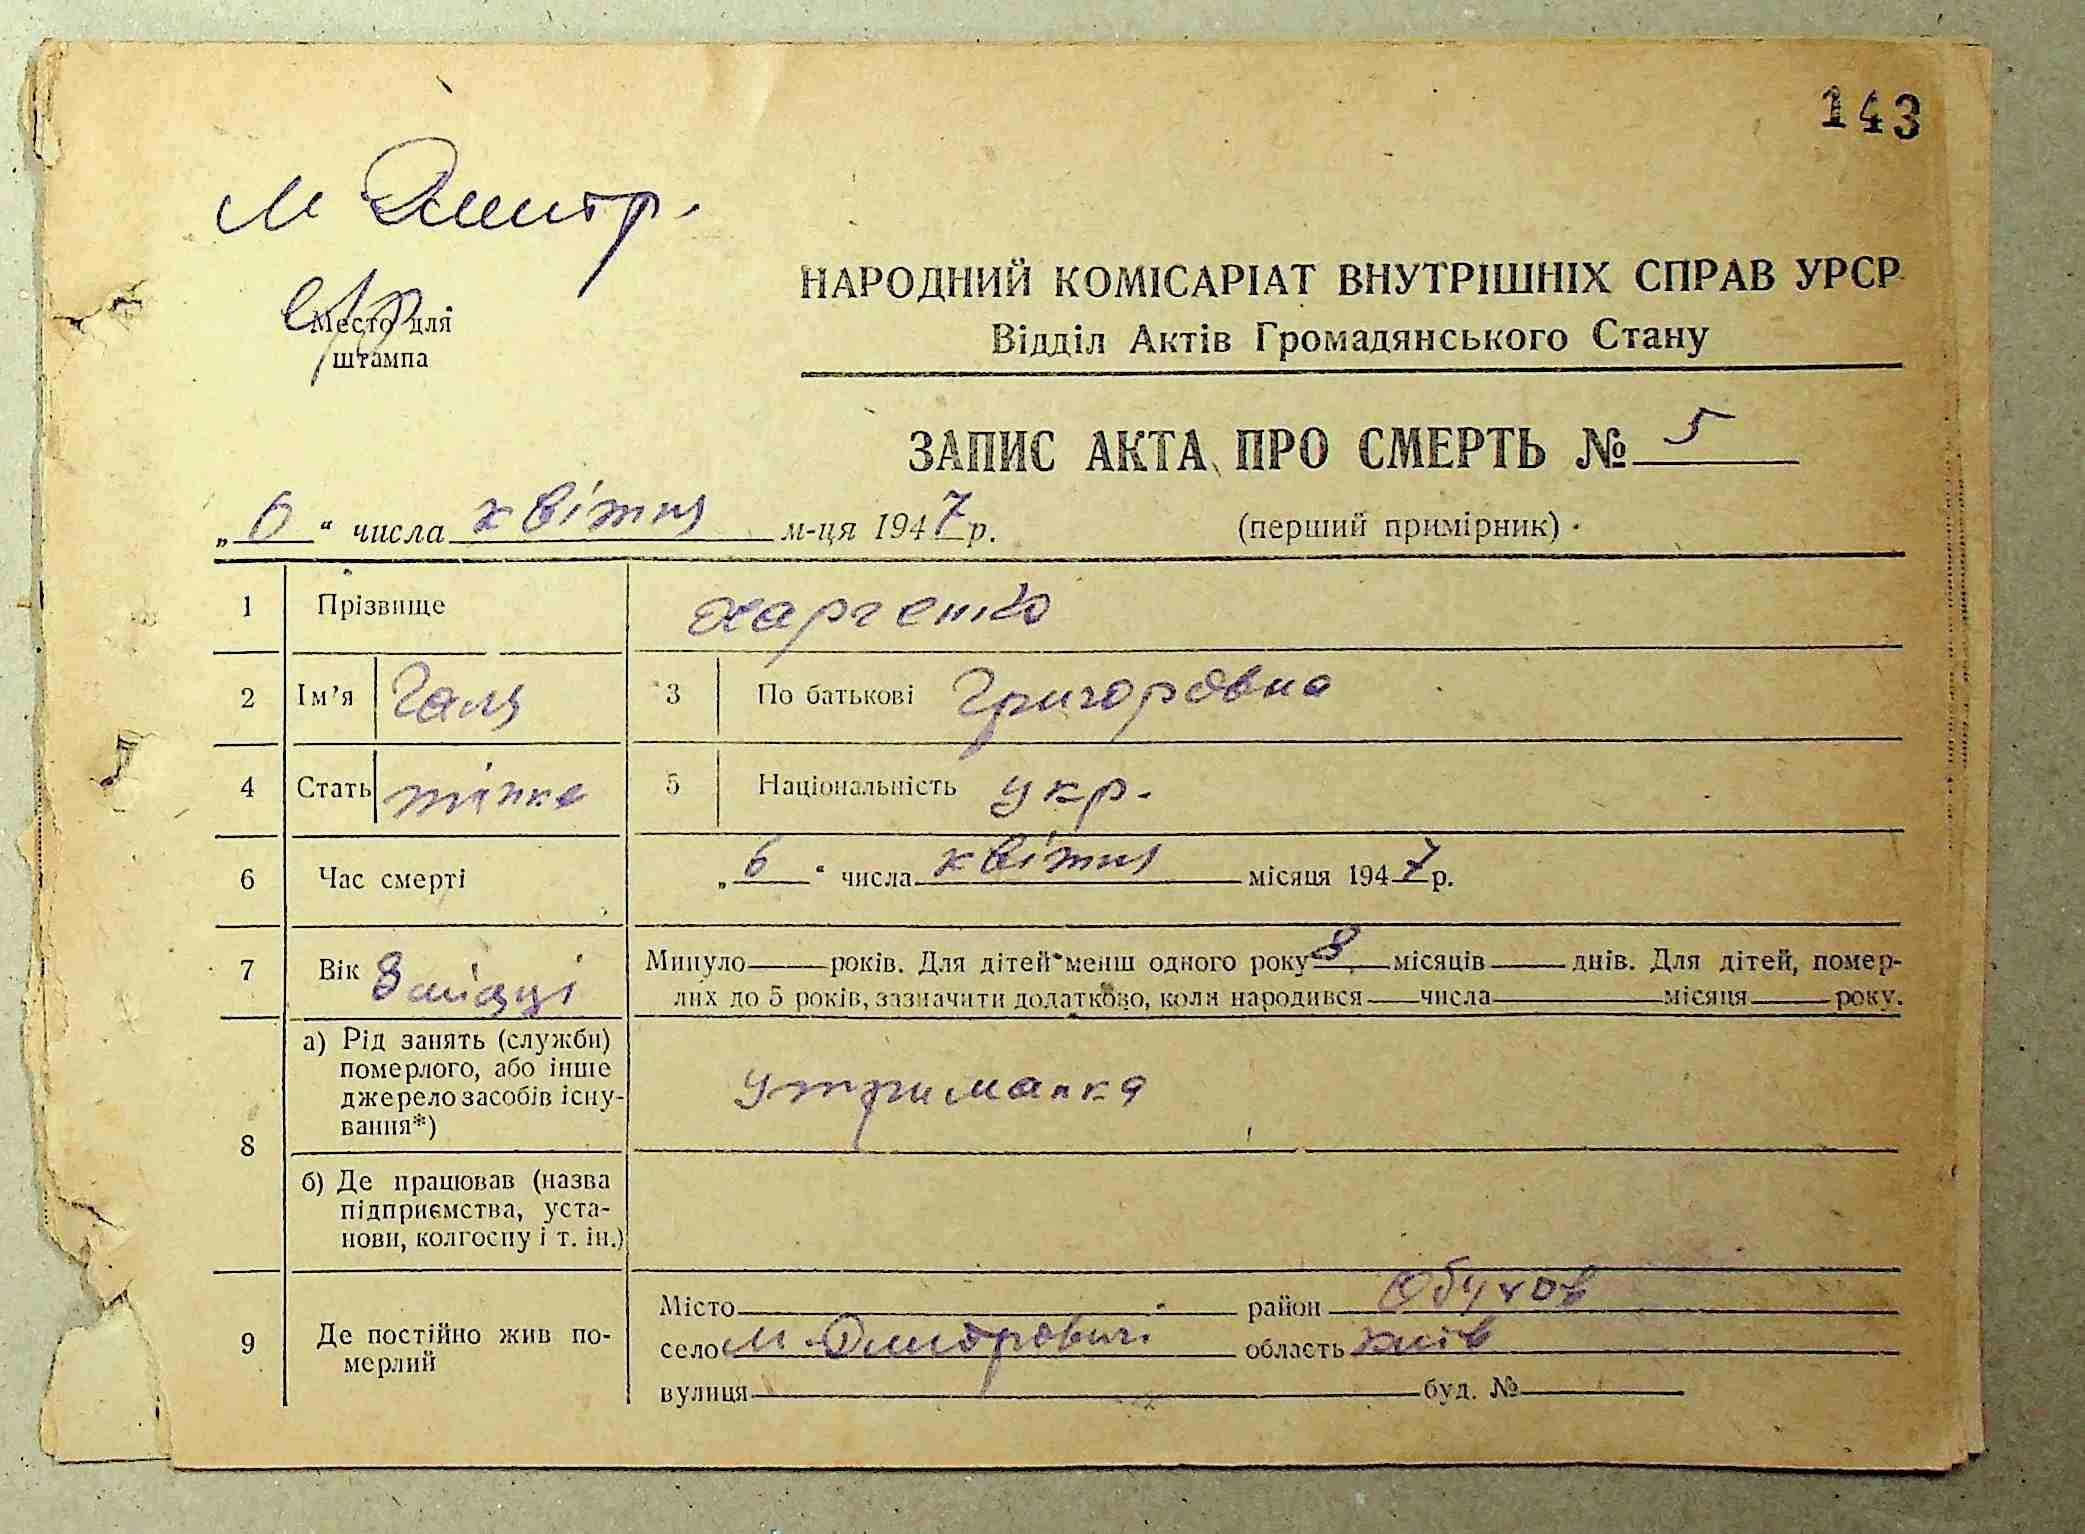 143
М Дмитр.
с/р
Место для
штампа
НАРОДНИЙ КОМІСАРІАТ ВНУТРІШНІХ СПРАВ УРСР
Відділ Актів Громадянського Стану
ЗАПИС АКТА ПРО СМЕРТЬ № 5
„6“ числа квітня м-ця 1947 р. (перший примірник)
1 Прізвище Харченко
2 Ім’я Галя 3 По батькові Григоровна
4 Стать жінка 5 Національність укр.
6 Час смерті „6“ числа квітня місяця 1947 р.
7 Вік 8 місяці Минуло років. Для дітей менш одного року 8 місяців днів. Для дітей, помер-
лих до 5 років, зазначити додатково, коли народився числа місяця року.
8 а) Рід занять (служби)
померлого, або інше
джерело засобів існу-
вання*)
утриманка
б) Де працював (назва
підприємства, уста-
нови, колгоспу і т. ін.)
9 Де постійно жив по-
мерлий
Місто район Обухов
село М-Дмитровичі область Київ
вулиця буд. №